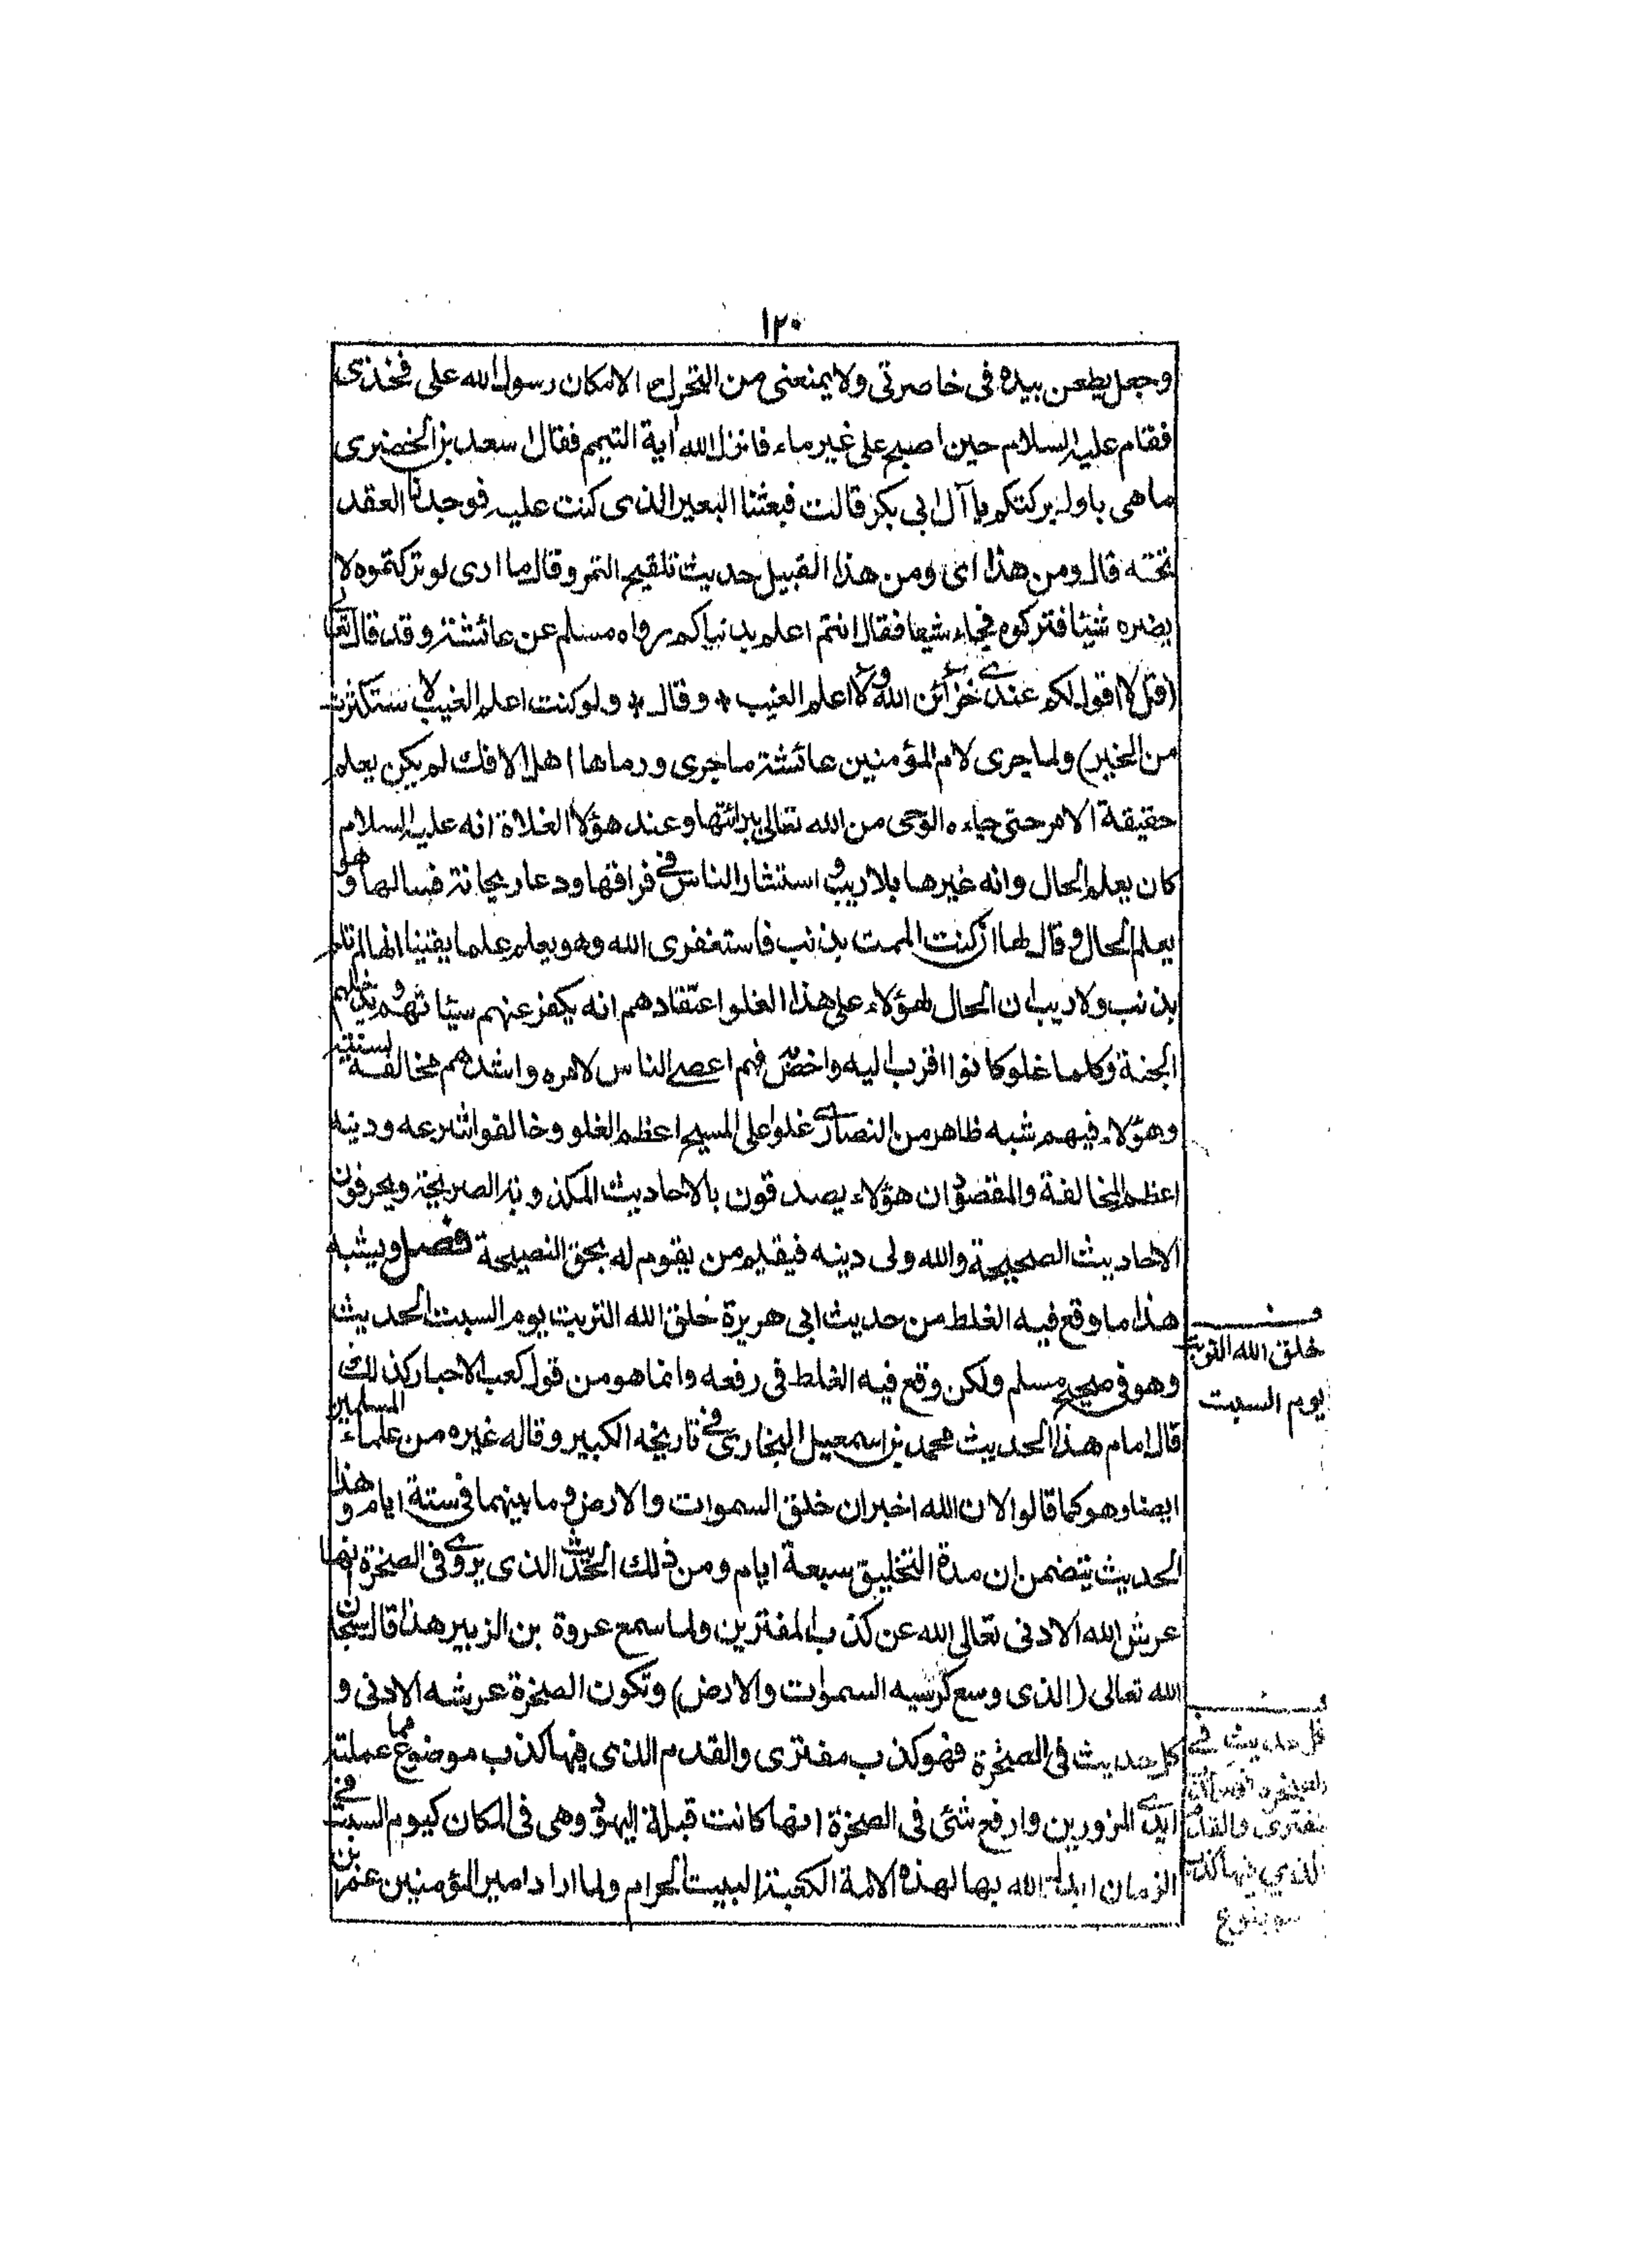 ١٢٠
وجعل يطعن بيده فى خاصرتى ولا يمنعنى من التحرك الا مكان رسول الله على فخذى
فقام عليه السلام حين اصبح على غير ماء فانزل الله آية التيمم فقال اسعد بن الخضيرى
ما هى باول بركتكم يا آل ابى بكر قالت فبعثنا البعير الذى كنت عليه فوجدنا العقد
تحته قال ومن هذا اى ومن هذا القبيل حديث تلقيح التمر وقال ما ارى لو تركتموه لا
يضره شيئا فتركوه فجاء شيصا فقال انتم اعلم بدنياكم رواه مسلم عن عائشة وقد قال تعالى
(قل لا اقول لكم عندى خزائن الله ولا اعلم الغيب * وقال * ولو كنت اعلم الغيب لاستكثرت
من الخير) ولما جرى لام المؤمنين عائشة ما جرى ورماها اهل الافك لم يكن يعلم
حقيقة الامر حتى جاءه الوحى من الله تعالى ببرائتها وعند هؤلا الغلاة انه عليه السلام
كان يعلم الحال وانه غيرها بلا ريب واستشار الناس فى فراقها ودعا ريحانة فسالها وهو
يعلم الحال وقال لها ان كنت الممت بذنب فاستغفرى الله وهو يعلم علما يقينا انها لم تلم
بذنب ولا ريب ان الحال لهؤلاء على هذا الغلو اعتقادهم انه يكفر عنهم سيئاتهم ويدخلهم
الجنة وكلما غلو كانوا اقرب اليه واخص فهم اعصى الناس لامره واشدهم مخالفة لسنته
وهؤلاء فيهم شبه ظاهر من النصارى غلوا على المسيح اعظم الغلو وخالفوا شرعه ودينه
اعظم المخالفة والمقصود ان هؤلاء يصدقون بالاحاديث المكذوبة الصريحة ويحرفون
الاحاديث الصحيحة والله ولى دينه فيقيم من يقوم له بحق النصيحة فصل ويشبه
هذا ما وقع فيه الغلط من حديث ابى هريرة خلق الله التربت يوم السبت الحديث
وهو فى صحيح مسلم ولكن وقع فيه الغلط فى رفعه وانما هو من قول كعب الاحبار كذلك
قال امام هذا الحديث محمد بن اسمعيل البخارى فى تاريخه الكبير وقاله غيره من علماء المسلمين
ايضا وهو كما قالوا لان الله اخبر ان خلق السموات والارض وما بينهما فى ستة ايام وهذا
الحديث يتضمن ان مدة التخليق سبعة ايام ومن ذلك الحديث الذى يروى فى الصخرة انها
عرش الله الادنى تعالى الله عن كذب المفترين ولما سمع عروة بن الزبير هذا قال سبحان
الله تعالى (الذى وسع كرسيه السموات والارض) وتكون الصخرة عرشه الادنى و
كل حديث فى الصخرة فهو كذب مفترى والقدم الذى فيها كذب موضوع مما عملته
ايدى المزورين وارفع شئى فى الصخرة انها كانت قبلة اليهود وهى فى المكان كيوم السبت فى
الزمان ابدل الله بها لهذه الامة الكعبة البيت الحرام ولما اراد امير المؤمنين عمر بن
خلق الله التربت
يوم السبت
كل حديث فى
مفترى والقدم
الذي فيها كذب
موضوع